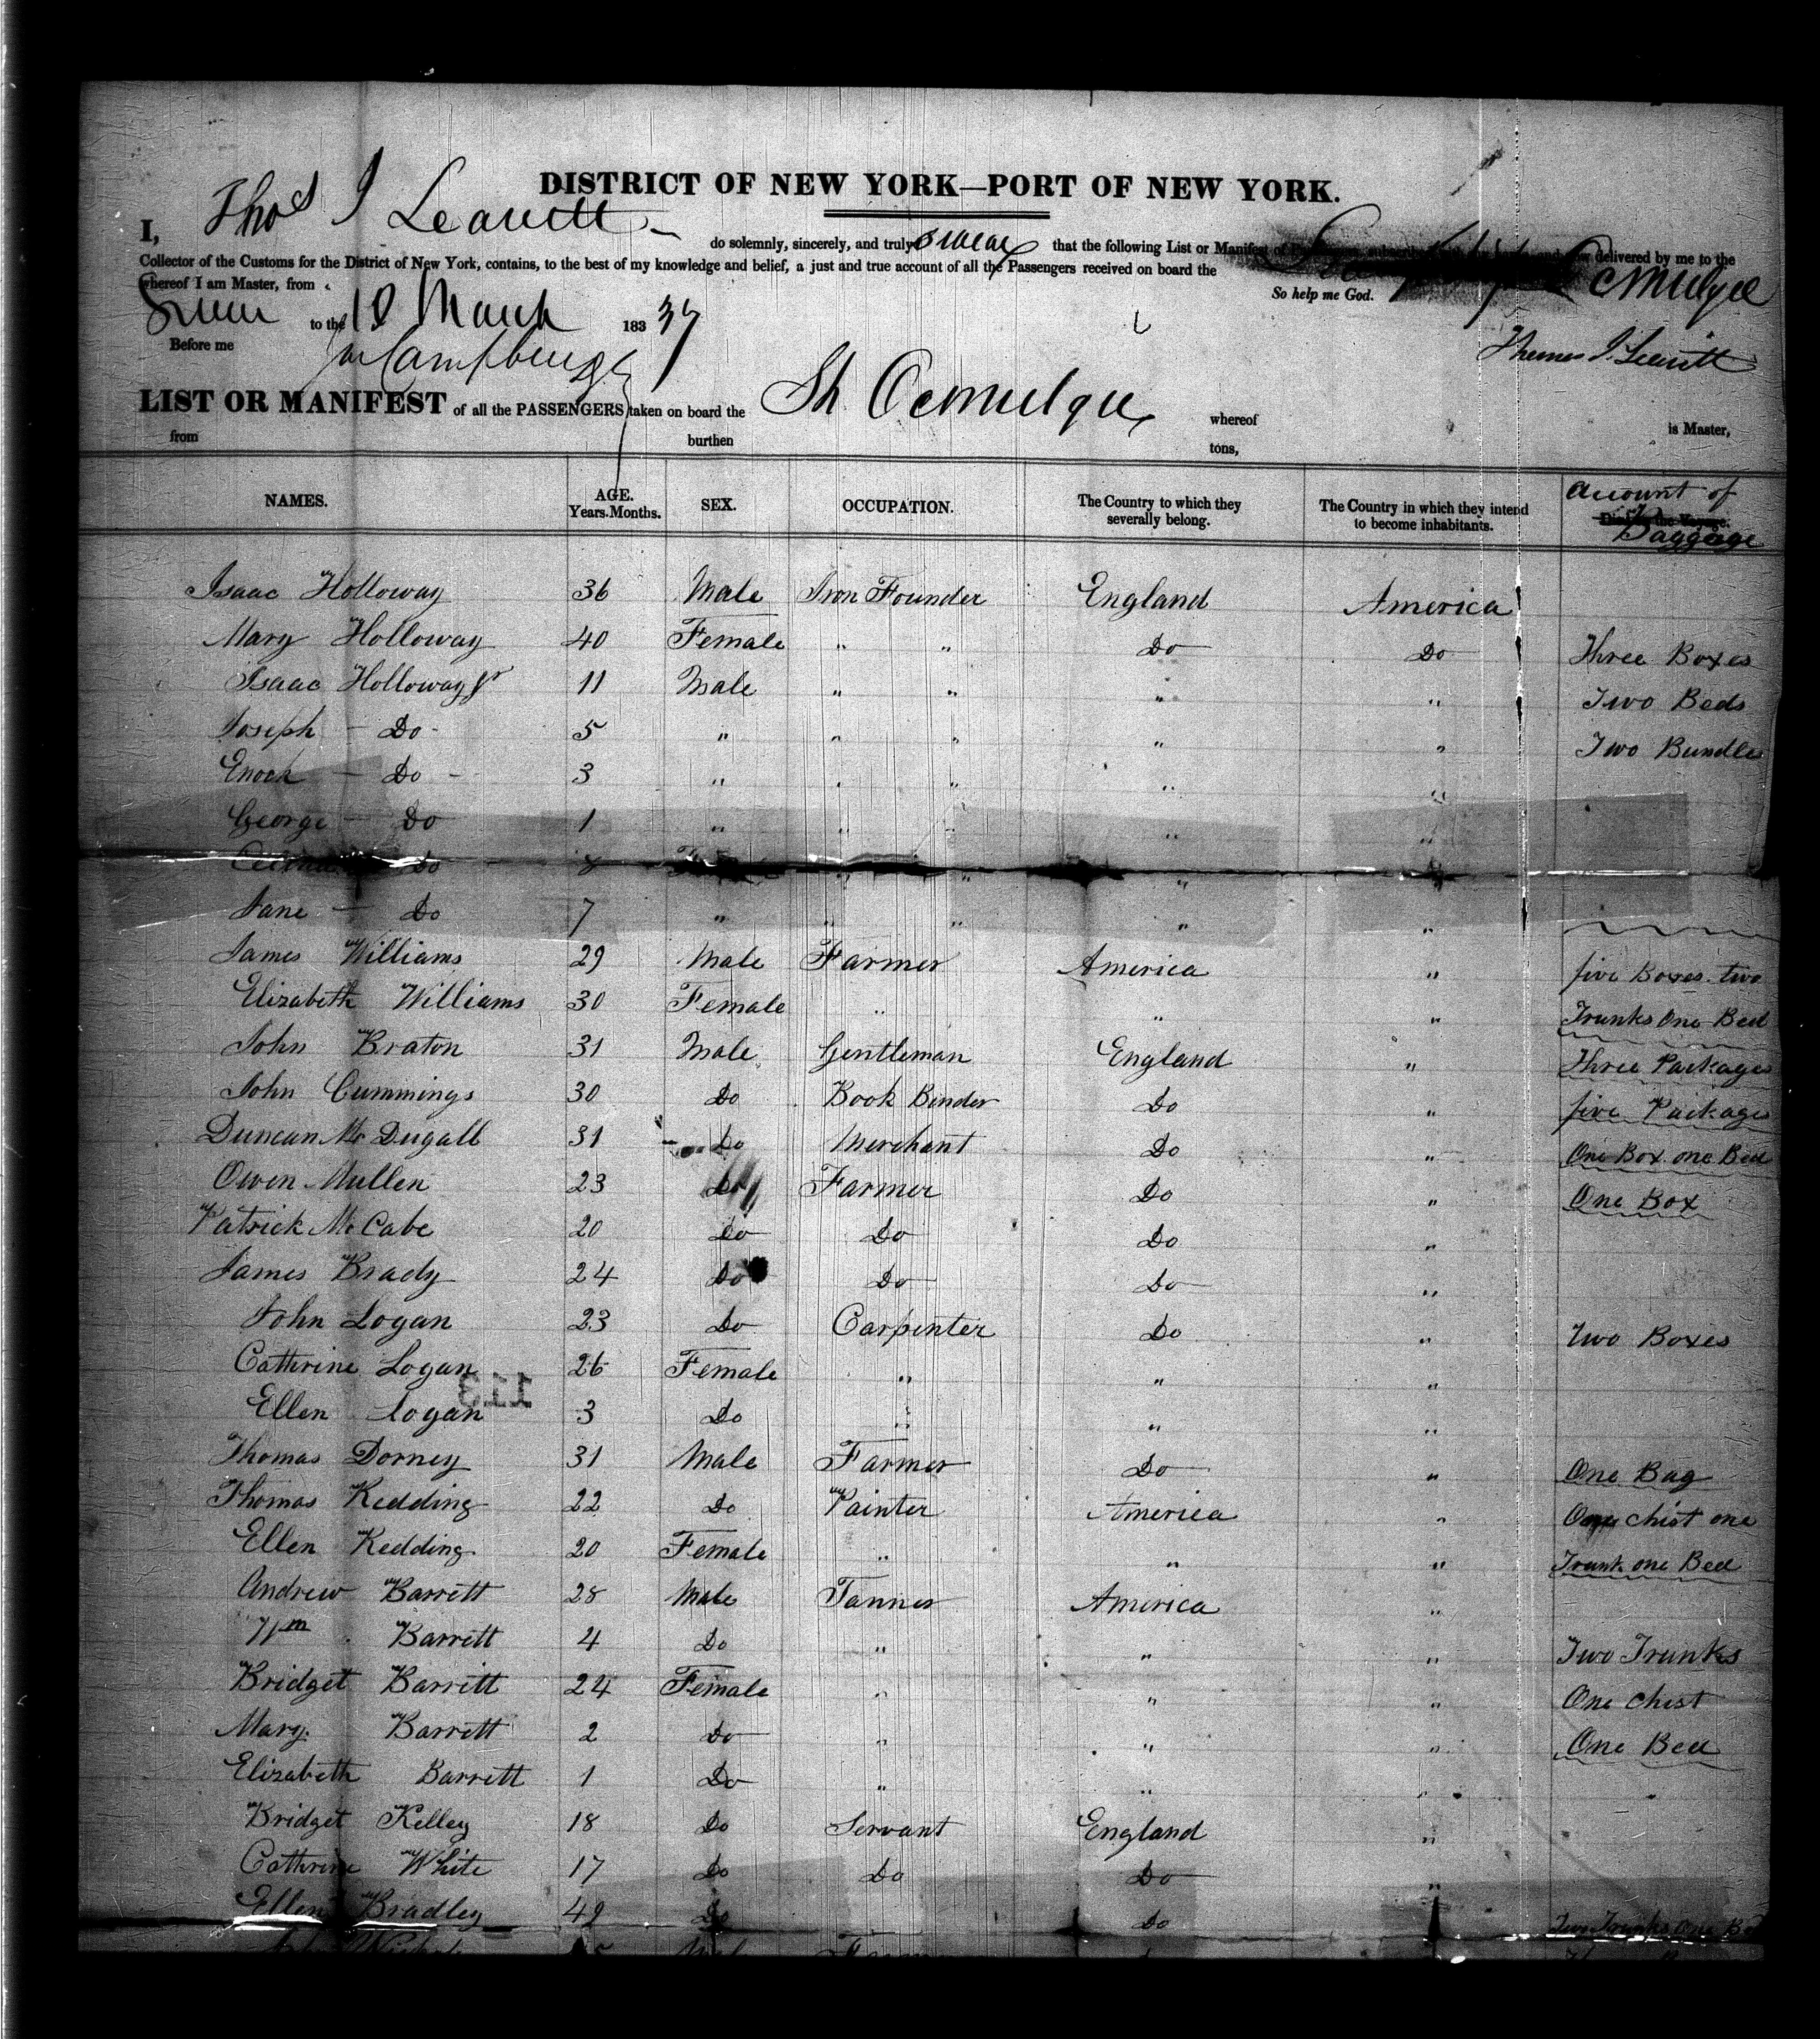 DISTRICT OF NEW YORK—PORT OF NEW YORK.
I, Thos J Leavitt do solemnly, sincerely, and truly swear that the following List or Manifest of Passengers, subscribed now delivered by me to the
Collector of the Customs for the District of New York, contains, to the best of my knowledge and belief, a just and true account of all the Passengers received on board the Ocmulgee
whereof I am Master, from
So help me God.
Sworn to the 18 March 183 37
Before me Thomas J. Leavitt
Campbell
LIST OR MANIFEST of all the PASSENGERS taken on board the Sh Ocmulgee whereof is Master,
from burthen tons,
NAMES. AGE. Years. Months. SEX. OCCUPATION. The Country to which they severally belong. The Country in which they intend to become inhabitants. Died on the Voyage. Account of Baggage
Isaac Holloway 36 Male Iron Founder England America
Mary Holloway 40 Female " " Do Do Three Boxes
Isaac Holloway Jr 11 Male " " " " Two Beds
Joseph - Do - 5 " " " " " Two Bundles
Enoch - Do - 3 " " " " "
George - Do 1 " " " " "
Do 8 " " " "
Jane - Do 7 " " " " "
James Williams 29 Male Farmer America " five Boxes two
Elizabeth Williams 30 Female " " " Trunks One Bed
John Braton 31 Male Gentleman England " Three Packages
John Cummings 30 Do Book Binder Do " five Packages
Duncan Mc Dugall 31 Do Merchant Do " One Box one Bed
Owen Mullen 23 Do Farmer Do " One Box
Patrick Mc Cabe 20 Do Do Do "
James Brady 24 Do Do Do "
John Logan 23 Do Carpenter Do " Two Boxes
Cathrine Logan 26 Female " " "
113
Ellen Logan 3 Do " " "
Thomas Dorney 31 Male Farmer Do " One Bag
Thomas Kedding 22 Do Painter America " One chist one
Ellen Kedding 20 Female " " " Trunk one Bed
Andrew Barrett 28 Male Tanner America "
Wm Barrett 4 Do " " " Two Trunks
Bridget Barritt 24 Female " " " One chist
Mary Barrett 2 Do " " " One Bed
Elizabeth Barrett 1 Do " " "
Bridget Kelley 18 Do Servant England "
Cathrine White 17 Do Do Do "
Ellen Bradley 42 Do Do Two Trunks One